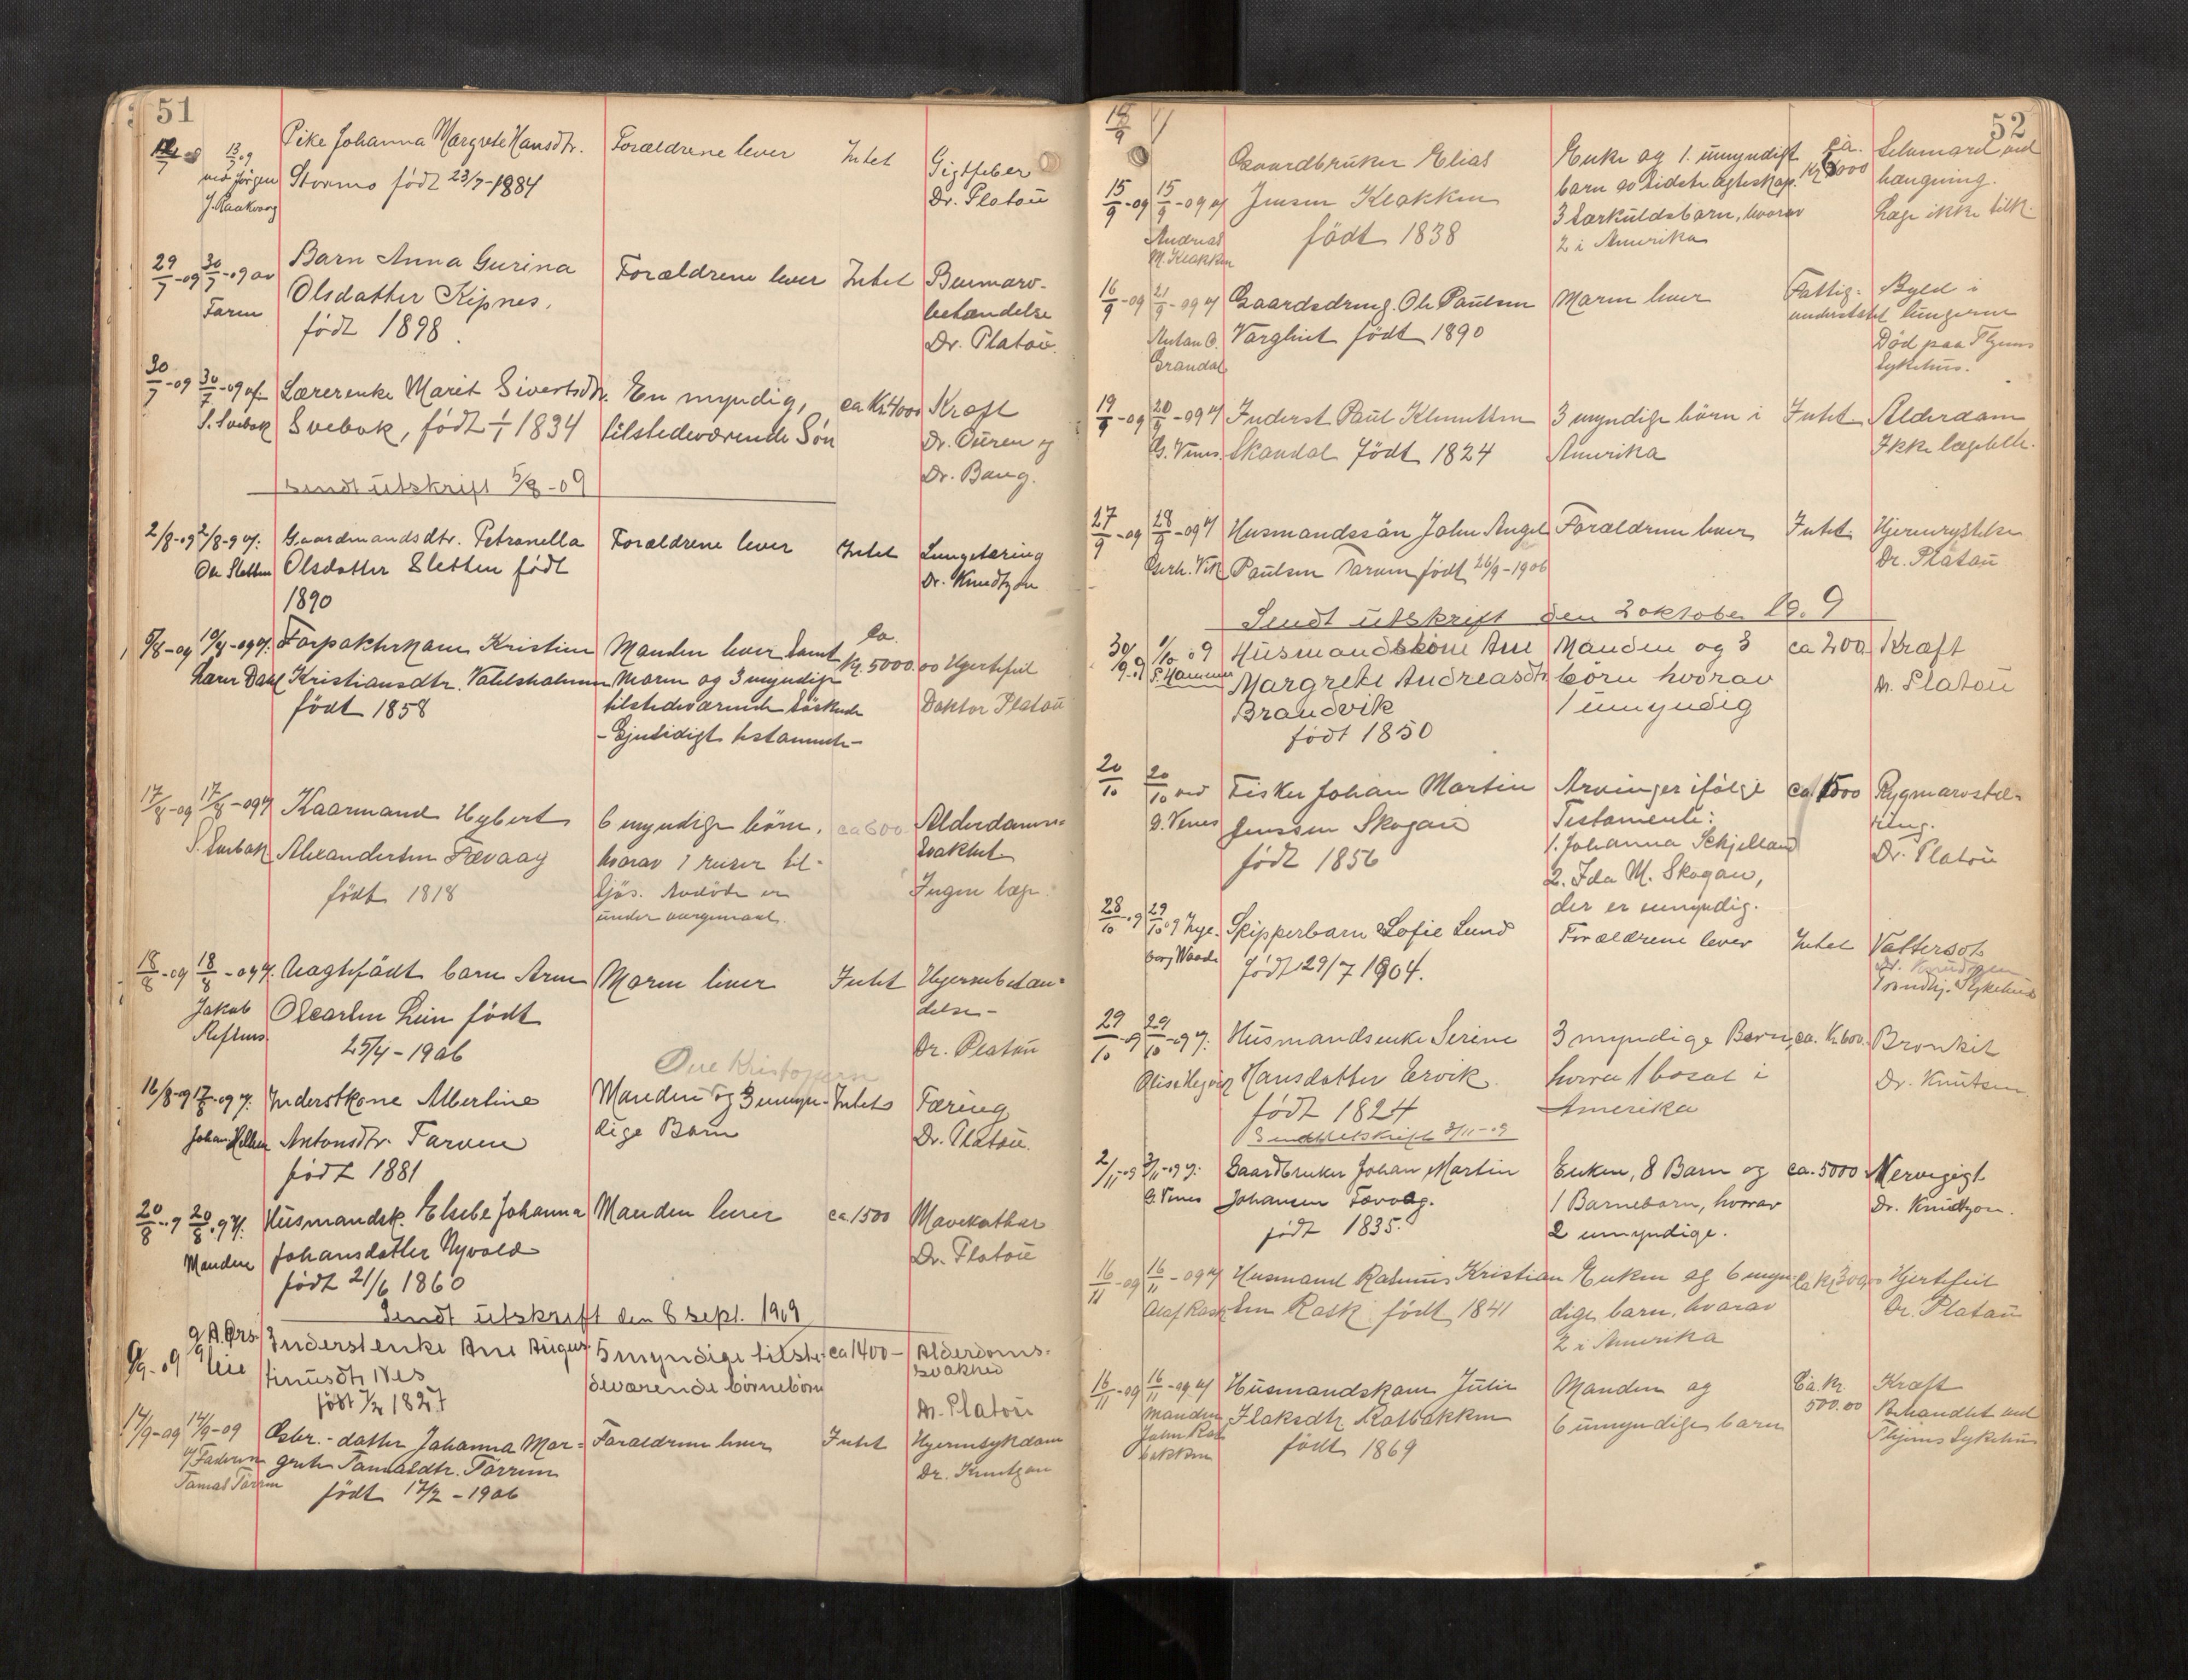 51
13/7 09
Pike Johanna Margrete Hansdtr. Forældrene lever Intet Gigtfeber
Stormo født 23/7-1884 Dr. Platou
29/7-09 30/7-09 av Barn Anna Gurina Forældrene lever Intet
Faren Olsdatter Kipnes.
født 1898. Dr. Platou.
30/7-09 30/7-09 af Lærerenke Marit Sivertsdtr. En myndig, ca Kr 4000 Kræft
S. Svebak Svebak, født 1/1 1834 tilstedeværende Søn Dr. Ouren og
Dr. Bang.
Sendt utskrift 3/8-09
2/8-09 2/8-9 af. Gaardmandsdtr. Petronella Forældrene lever Intet Lungetæring
Ole Sletten Olsdatter Sletten født Dr. Knudtzon
1890
Kristine Manden lever samt ca. Kr. 5000.00 Hjertefeil
Lærer Dahl Kristiansdtr. Moren og 3 myndige
født 1858 tilstedeværende Søskende Doktor Platou
17/8-09 17/8-09 af Kaarmand Hybert 6 myndige børn, ca 600 Alderdoms-
S. Svebak Alexandersen Fævaag hvorav 1 reiser til- svakhet
født 1818 sjøs. Ingen læge.
18/8-09 18/8-09 af. barn Arne Moren lever Intet
Jakob født
25/4-1906 Dr. Platou
16/8-9 17/8-09 af. Inderstkone Albertine Manden og 3 umyn- Intet Tæring
Johan Antonsdtr. Farven dige Barn Dr. Platou.
født 1881
20/8-9 20/8.9 af. Husmandsk. Elsebe Johanna Manden lever ca 1500 Mavekathar
Manden Johansdatter Nyvold Dr. Platou
født 21/6 1860
Sendt utskrift den 8 sept. 1909
9/9-09 Inderstenke Ane Augus- 5 myndige tilste- ca 1400- Alderdoms-
tinusdtr Nes deværende børnebørn svakhed
1827 Dr. Platou
14/9-09 14/9-09 datter Johanna Mar- Forældrene lever Intet Hjernesykdom
af Faderen grete Tomasdtr. Tørrem Dr. Knutzon
Tomas Tørrem født 17/2-1906
52
Gaardbruker Elias Enke og 1. umyndigt ca. Selvmord ved
15/9-09 15/9-09 af Jensen Klakken barn av sidste ægteskap. hængning.
Andreas født 1838 3 særkuldsbarn, hvorav Læge ikke tilk.
M. Klakken 2 i Amerika
16/9-09 21/9-09 af Gaardsdreng Ole Paulsen Moren lever Fattig- Byld i
Anton O. født 1890 understøttet lungerne
Grandal Død paa Thjems
Sykehus.
19/9-09 20/9-09 af Inderst Paul Klemetsen 3 myndige børn i Intet Alderdom
G. Venes. Skandal født 1824 Amerika Ikke lægetilk.
27/9-09 28/9-09 af Husmandssøn John Angel Forældrene lever Intet Hjernrystelse
Gerh. Vik Paulsen født 26/9-1906 Dr. Platou
Sendt utskrift den 2 oktober 19.9
30/9.9 1/10 09 Husmandskone Ane Manden og 3 ca 200 Kræft
P. Hammer Margrete Andreasdtr børn hvorav Dr. Platou
Brandvik 1 umyndig
født 1850
20/10 20/10 ved Fisker Johan Martin Arvinger ifølge ca 1500 Rygmarvstil-
G. Venes Jenssen Skogan Testamente:
født 1856 1. Johanna Schjelland Dr. Platou
2. Ida M. Skogan,
der er umyndig.
28/10.9 29/10 09 Inge- Skipperbarn Sofie Lund Forældrene lever Intet Vattersot
borg Waade født 29/7 1904. Trondhj. Sykehus
29/10-9 29/10-09 af. Husmandsenke Serine 3 myndige Barn, ca. Kr 600. Bronkit
Hansdatter Ervik hvorav 1 bosat i Dr. Knutsen
født 1824 Amerika
Sendt Utskrift 3/11-09
2/11-09 3/11-09 af. Gaardbruker Johan Martin Enken, 8 Barn og ca. 5000 Nervegigt
G. Venes Johansen Fævaag. 1 Barnebarn, hvorav Dr. Knudtzon.
født 1835. 2 umyndige.
16/11-09 16/11-09 af Husmand Rasmus Kristian Enken og 6 myn- ca Kr 300,00 Hjertefeil
Olaf Rask sen Rask født 1841 dige barn, hvorav Dr. Platou
2 i Amerika
16/11-09 16/11-09 af Husmandskone Julie Manden og Ca. Kr. Kræft
Manden Flaksdtr. Ratbakken 6 umyndige barn 500.00 Behandlet ved
John Rat- født 1869 Thjems Sykehus
bakken